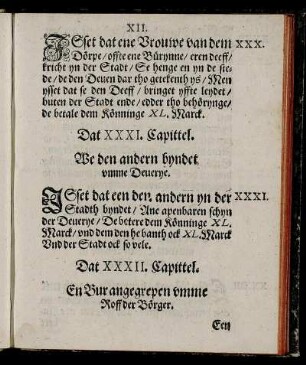 XII.
ISset dat ene Vrouwe van dem XXX.
Dörpe / offte ene Bürynne / eren deeff /
kricht yn der Stadt / Se henge en yn de ste-
de / de den Deuen dar tho geteekenth ys / Men
ysset dat se den Deeff / bringet yffte leydet /
buten der Stadt ende / edder tho behörynge /
de betale dem Könninge XL. Marck.
Dat XXXI. Capittel.
We den andern byndet
vmme Deuerye.
ISset dat een den andern yn der XXXI.
Stadth byndet / Ane apenbaren schyn
der Deuerye / De betere dem Könninge XL.
Marck / vnd dem den he banth ock XL. Marck
Vnd der Stadt ock so vele.
Dat XXXII. Capittel.
En Bur angegrepen vmme
Roff der Börger.
Een